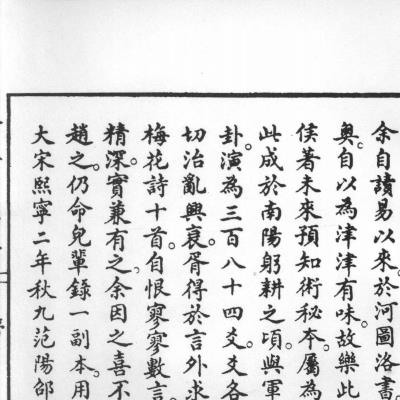 余自讀易以來。於河圖洛書
奧。自以為津津有味。故樂此
侯著未來預知術秘本。屬為
此成於南陽躬耕之頃。與軍
卦。演為三百八十四爻。爻各
切治亂興衰。胥得於言外求
梅花詩十首。自恨寥寥數言
精深。實兼有之。余因之喜不
趙之。仍命兒輩錄一副本。用
大宋熙寧二年秋九范陽邵